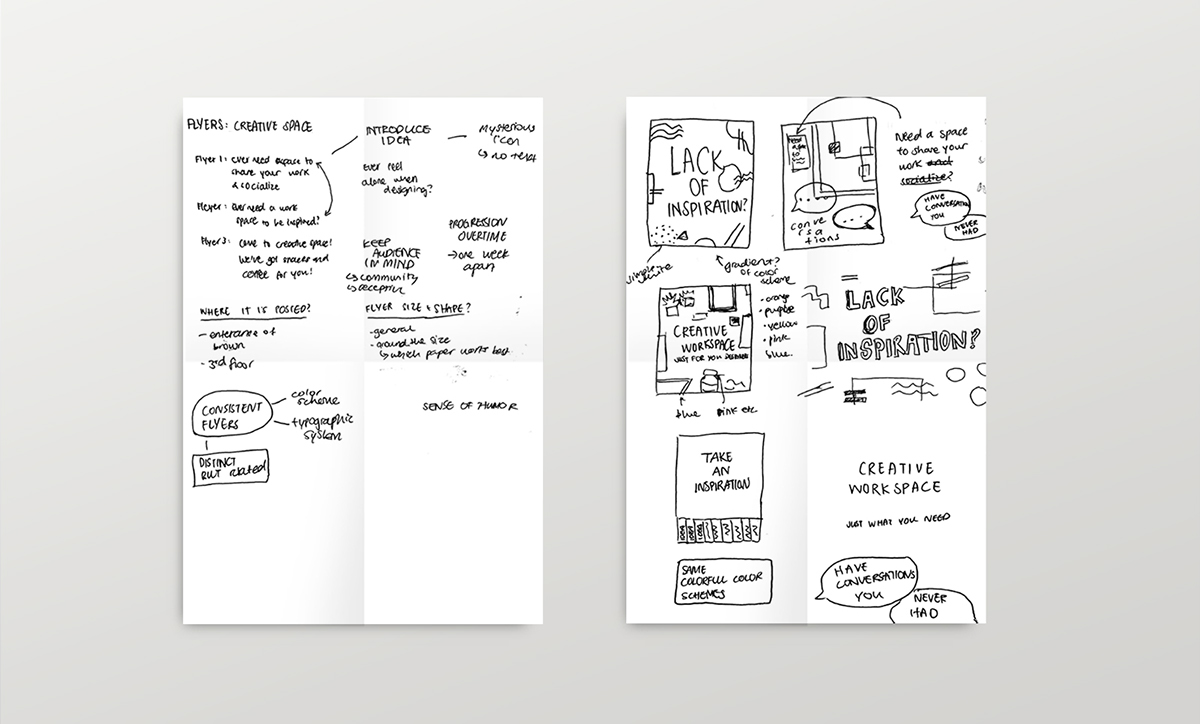 FLYERS: CREATIVE SPACE
Flyer 1: ever need a space to
share your work
& socialize
Flyer 2: Ever need a work
space to be inspired?
Flyer 3: Come to creative space!
We've got snacks and
coffee for you!
INTRODUCE
IDEA
Mysterious
icon
↳ no text
Ever feel
alone when
designing?
PROGRESSION
OVERTIME
→ one week
apart
KEEP
AUDIENCE
IN MIND
↳ community
↳ receptive
WHERE IT IS POSTED?
- entrance of
brown
- 3rd floor
FLYER SIZE & SHAPE?
- general
- around the size
↳ which paper works best
CONSISTENT
FLYERS
color
scheme
typographic
system
DISTINCT
BUT related
SENSE OF HUMOR
LACK
OF
INSPIRATION?
conve
rsa
tions
Need a space
to share your
work and
socialize?
HAVE
CONVERSATION
YOU
NEVER
HAD
simple
white
gradient?
of color
scheme
• orange
• purple
• yellow
• pink
blue
CREATIVE
WORKSPACE
JUST FOR YOU DESIGNED
blue
pink etc
LACK
OF
INSPIRATION?
TAKE
AN
INSPIRATION
SAME
COLORFUL COLOR
SCHEMES
CREATIVE
WORKSPACE
JUST WHAT YOU NEED
HAVE
CONVERSATIONS
YOU
NEVER
HAD